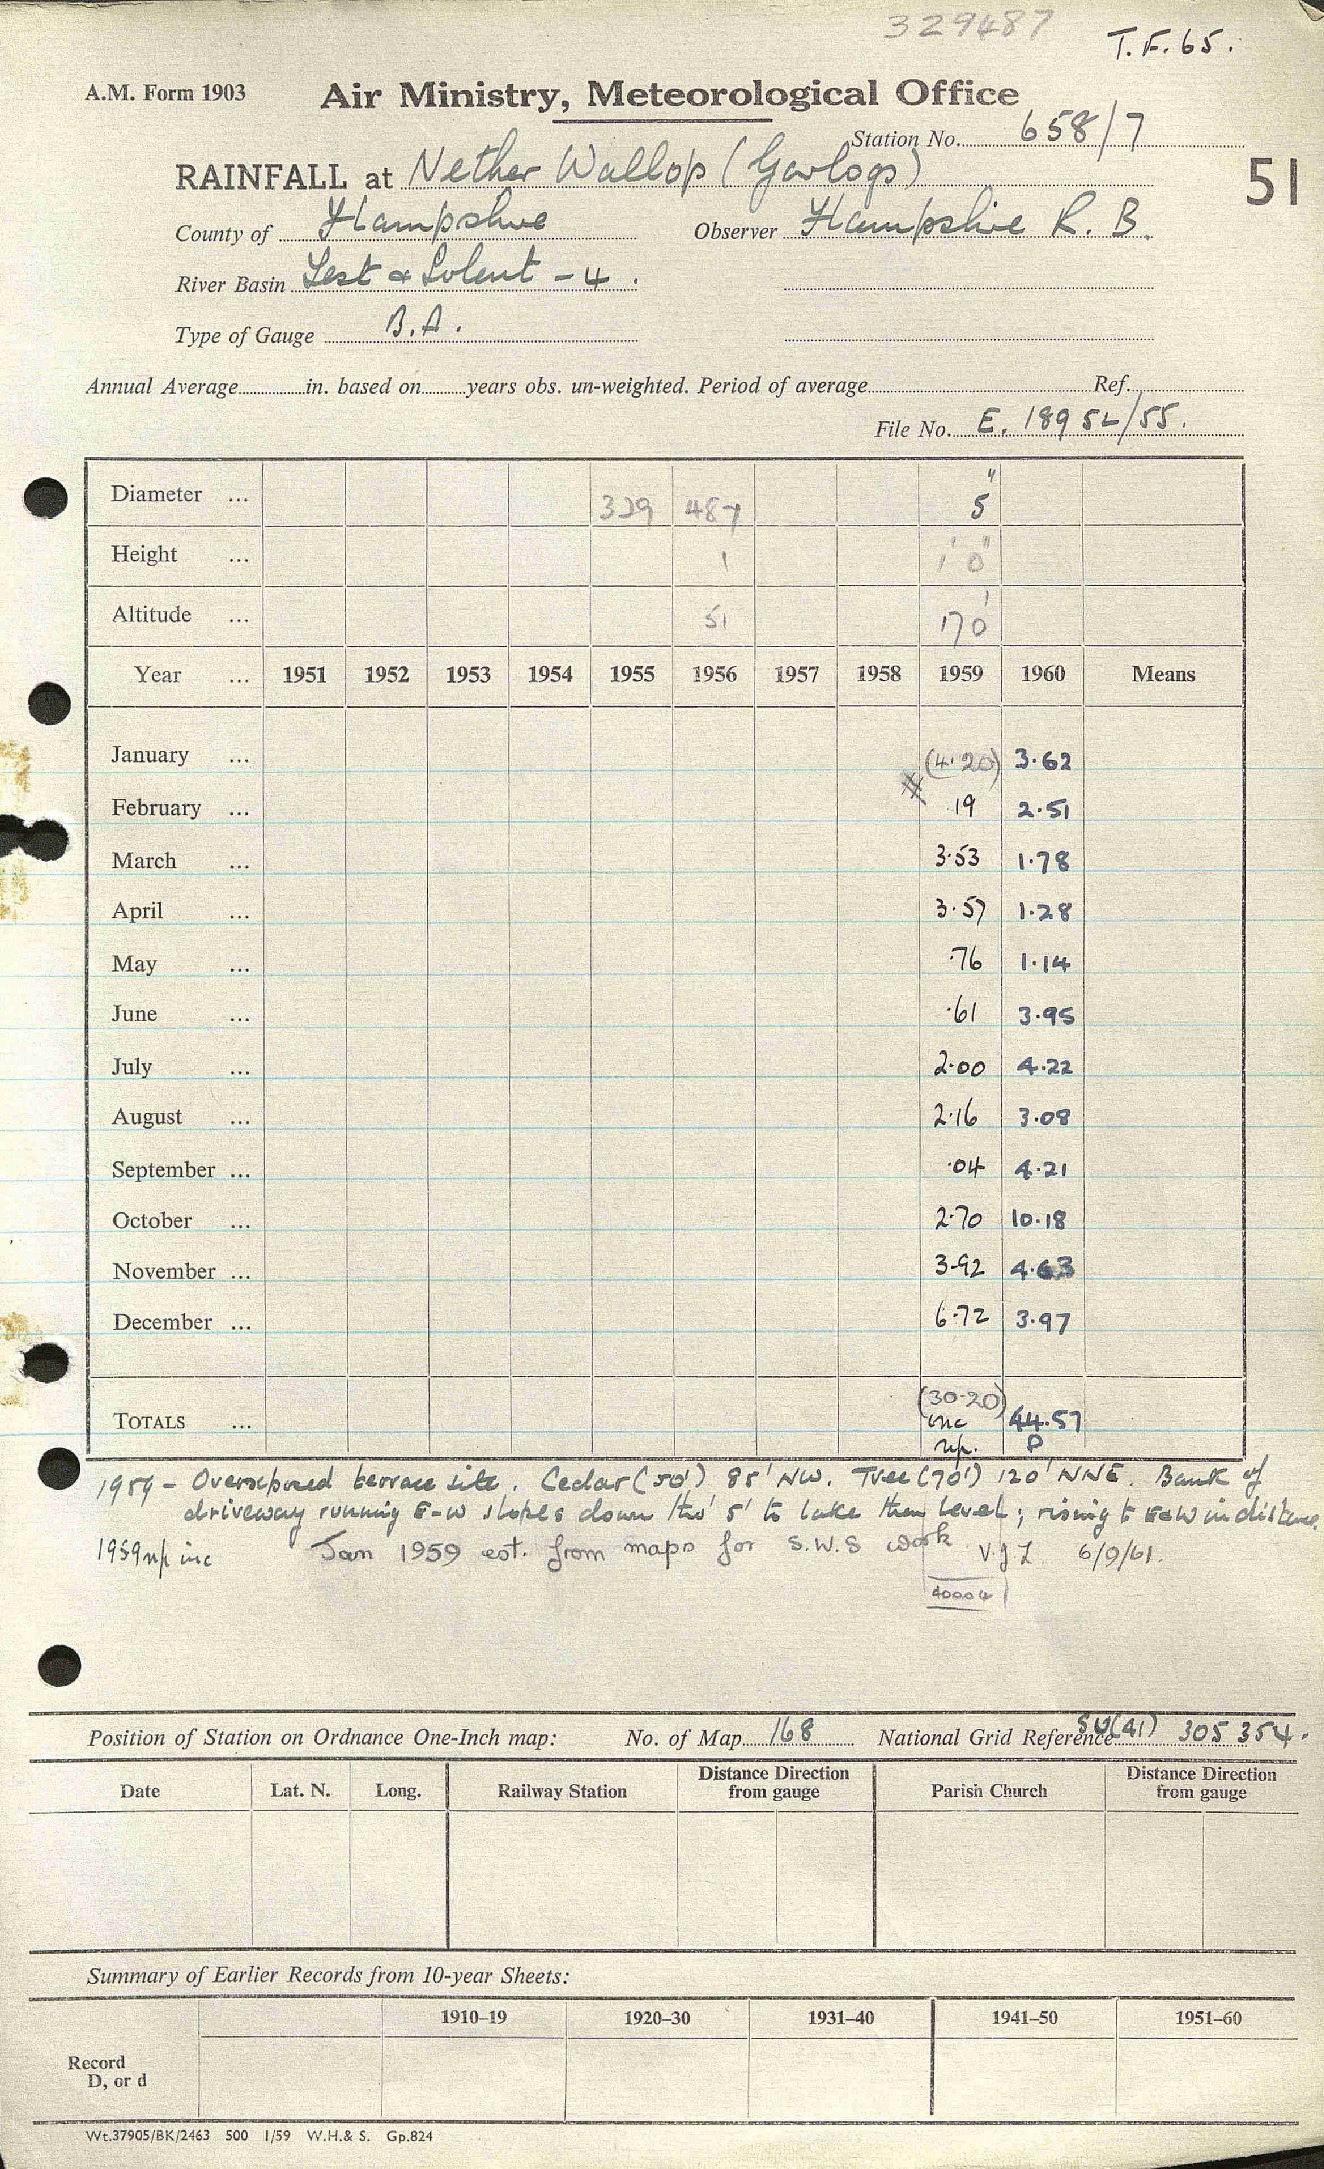 329487
T.F.65.
A.M. Form 1903 Air Ministry, Meteorological Office
Station No. 658/7
RAINFALL at Nether Wallop (Garlogs)
51
County of Hampshire Observer Hampshire R. B.
River Basin Test & Solent - 4.
Type of Gauge B.A.
Annual Average in. based on years obs. un-weighted. Period of average Ref.
File No. E. 18952/55.
Diameter ... 329 487 5"
Height ... 1 1' 0"
Altitude ... 51 170'
Year ... 1951 1952 1953 1954 1955 1956 1957 1958 1959 1960 Means
January ... (4.20) 3.62
February ... .19 2.51
March ... 3.53 1.78
April ... 3.57 1.28
May ... .76 1.14
June ... .61 3.95
July ... 2.00 4.22
August ... 2.16 3.08
September ... .04 4.21
October ... 2.70 10.18
November ... 3.92 4.63
December ... 6.72 3.97
TOTALS ... (30.20) 44.57
inc P
np.
1959 - Overexposed terrace site. Cedar (50') 85' NW. Tree (70') 120' NNE. Bank of
driveway running E-W slopes down thro' 5' to lake then level; rising to E&W in distance
1959 np inc Jan 1959 est. from maps for S.W.S work V.J.L 6/9/61.
40004
Position of Station on Ordnance One-Inch map: No. of Map 168 National Grid Reference SU(41) 305 354.
Date Lat. N. Long. Railway Station Distance Direction from gauge Parish Church Distance Direction from gauge
Summary of Earlier Records from 10-year Sheets:
1910–19 1920–30 1931–40 1941–50 1951–60
Record
D, or d
Wt.37905/BK/2463 500 1/59 W.H.& S. Gp.824